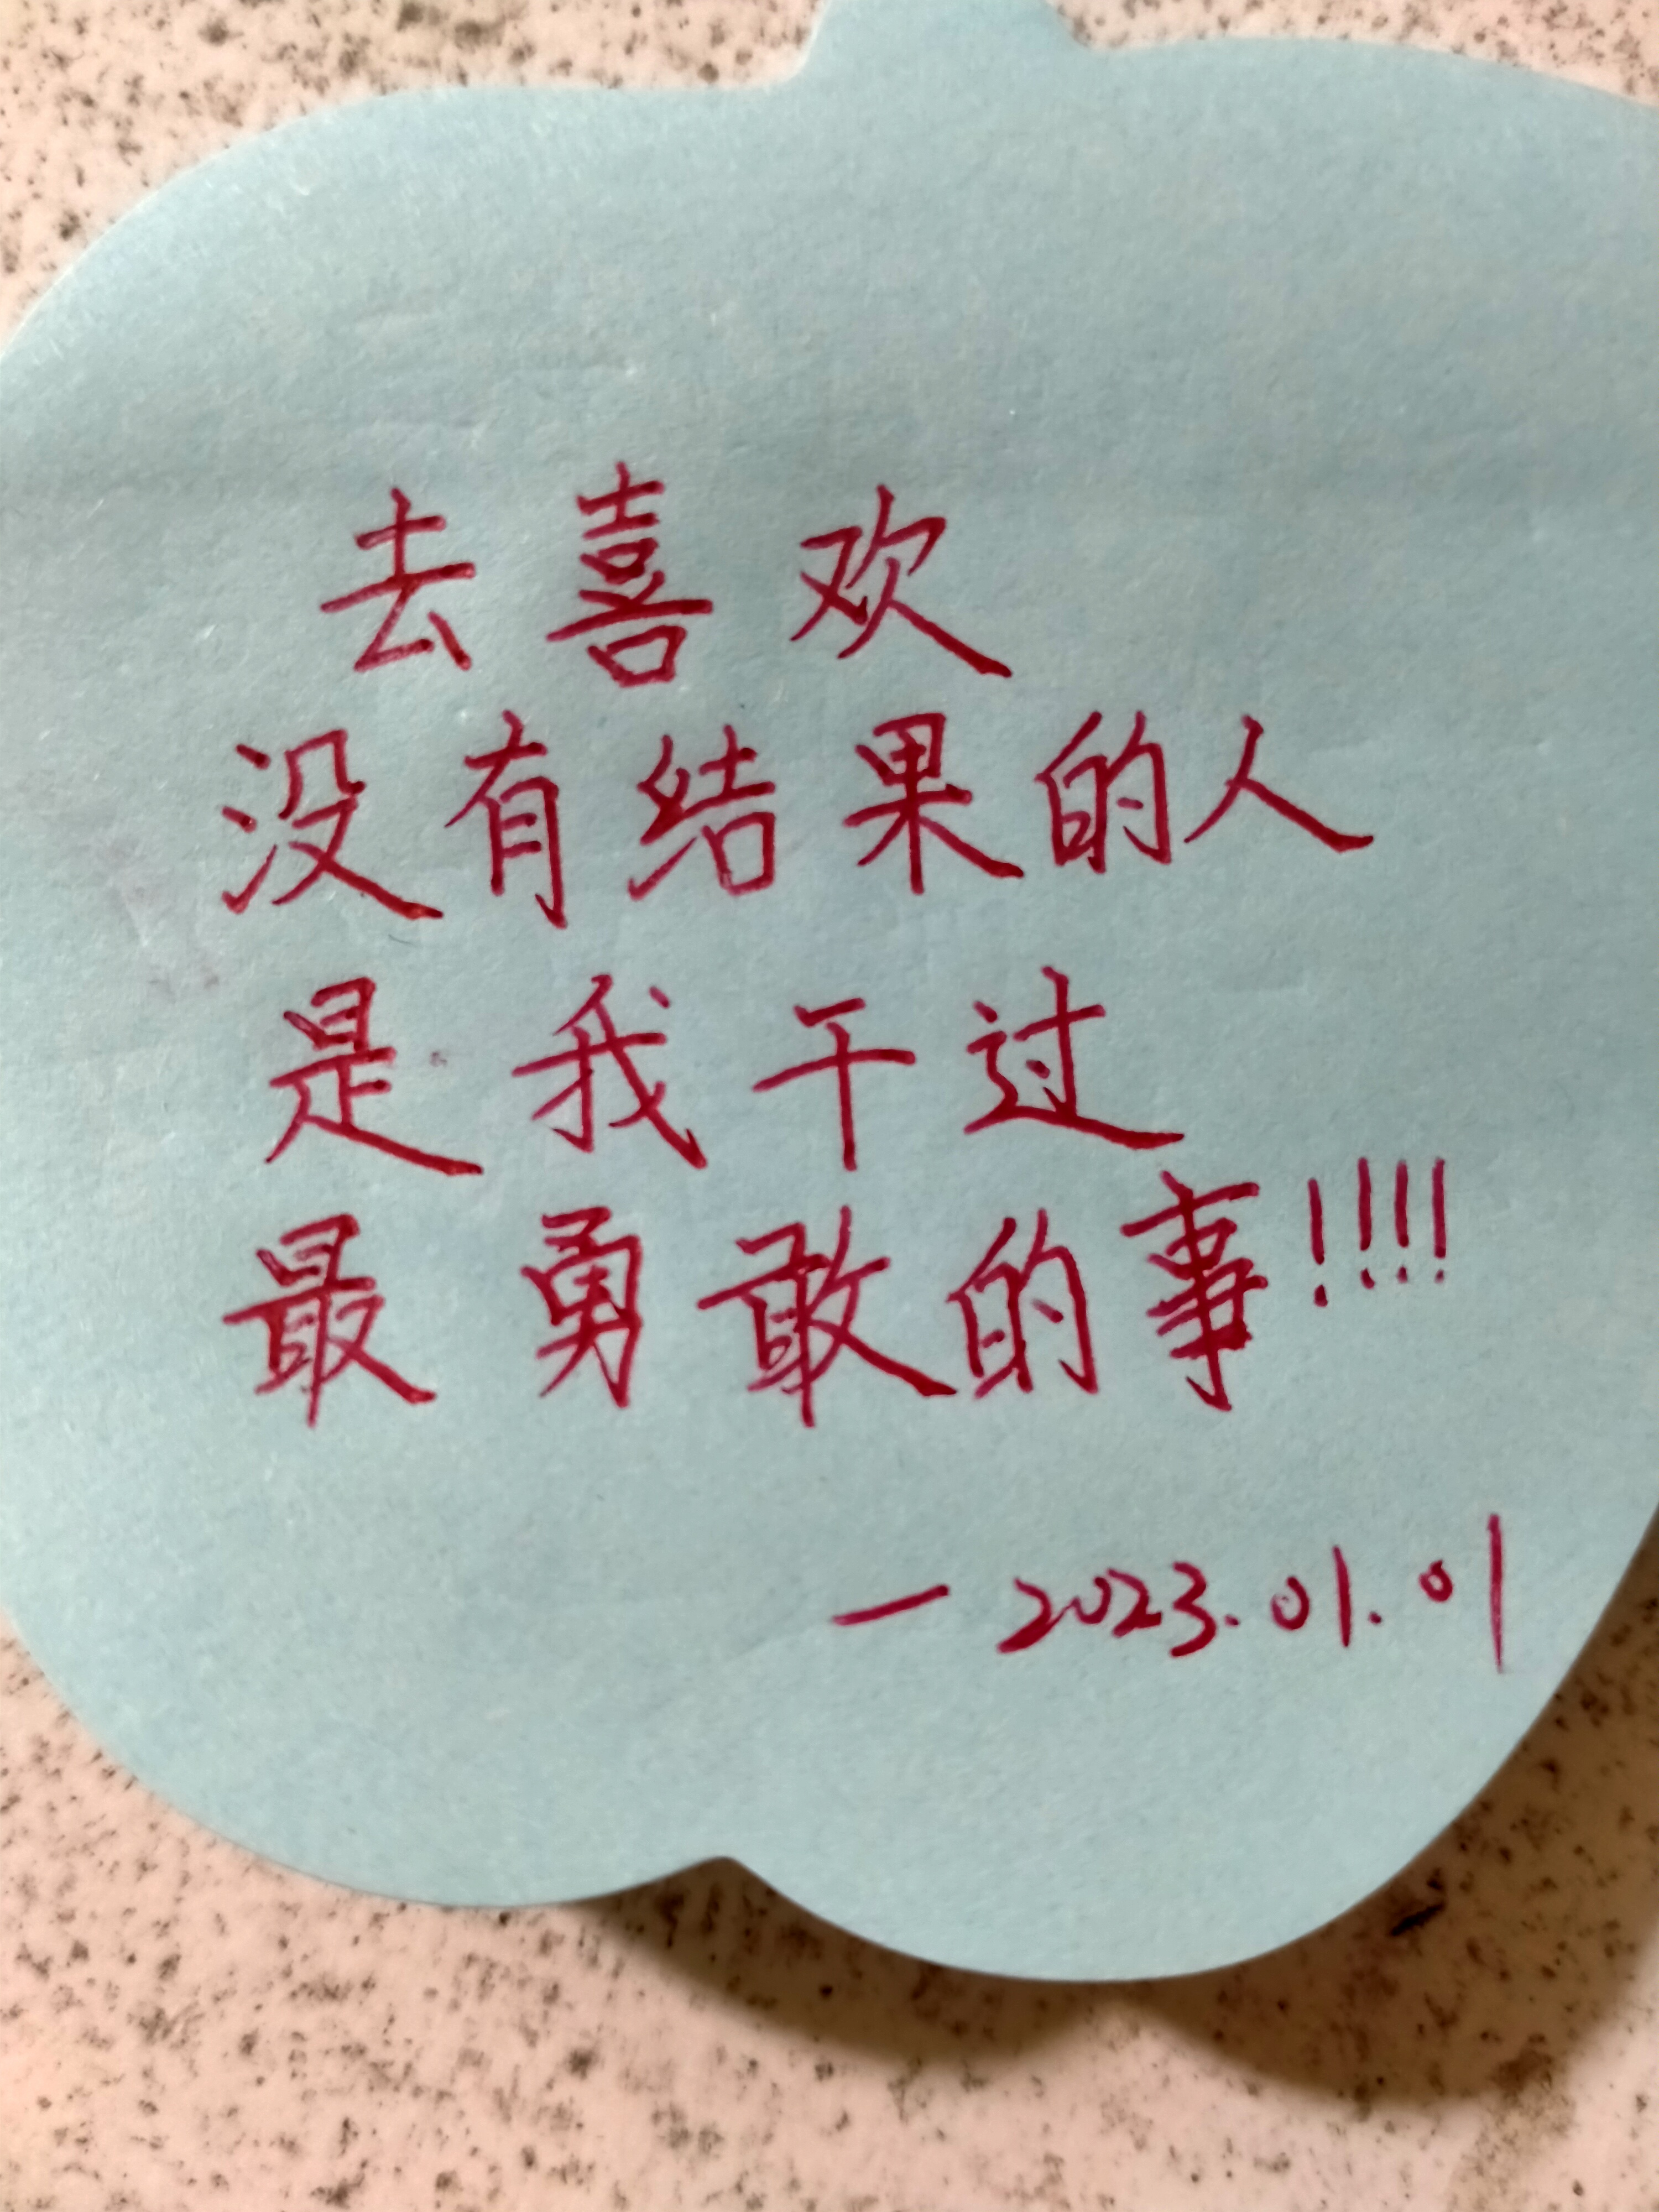 去喜欢
没有结果的人
是我干过
最勇敢的事!!!!
—2023.01.01